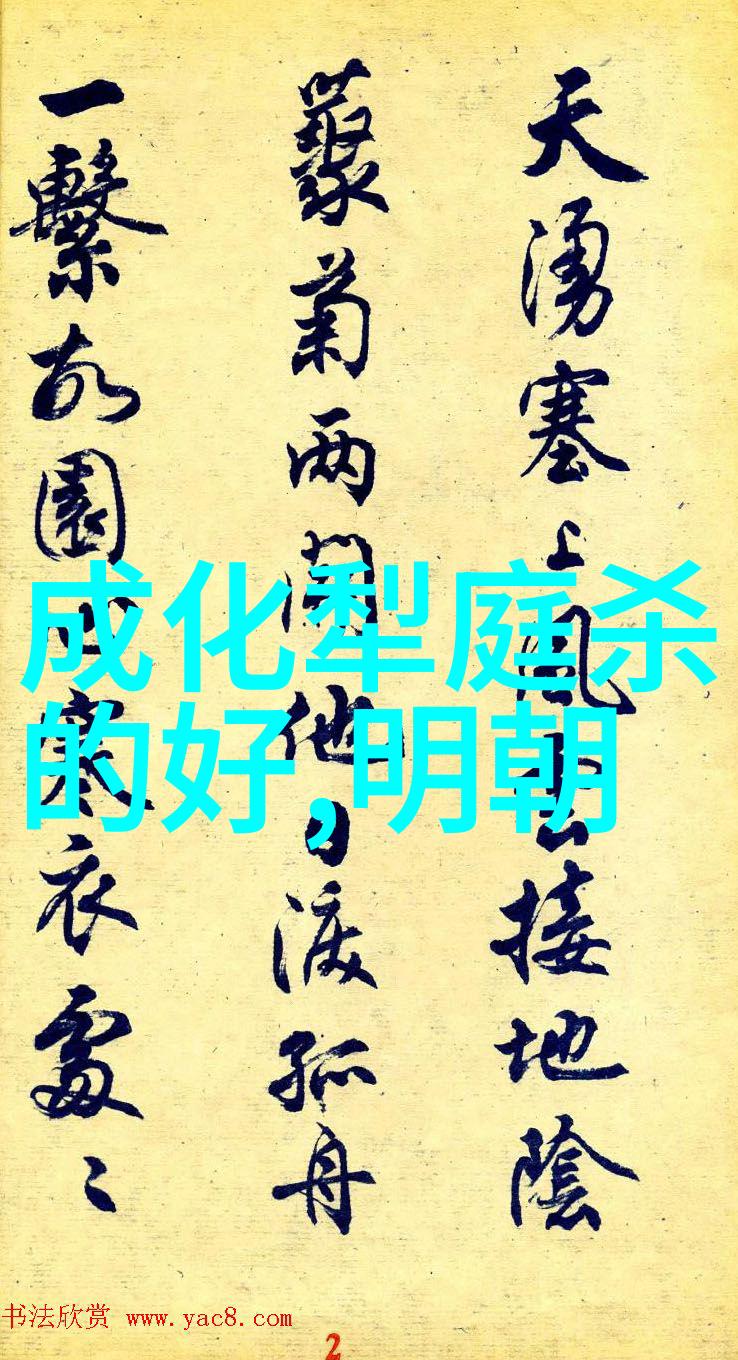 天湧塞上風雲接地陰
藂菊两開他日淚孤舟
一繫故園心寒衣處〻
成化犁庭杀
的好,明朝
书法欣赏 www.yac8.com
2